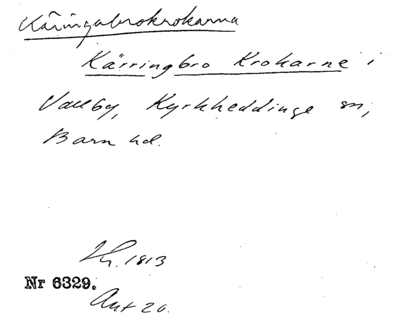 Käringabrokrokarna
Kärringbro Krokarne i
Vallby, Kyrkheddinge sn,
Bara hd.
1813
Nr 6329.
Akt 20.